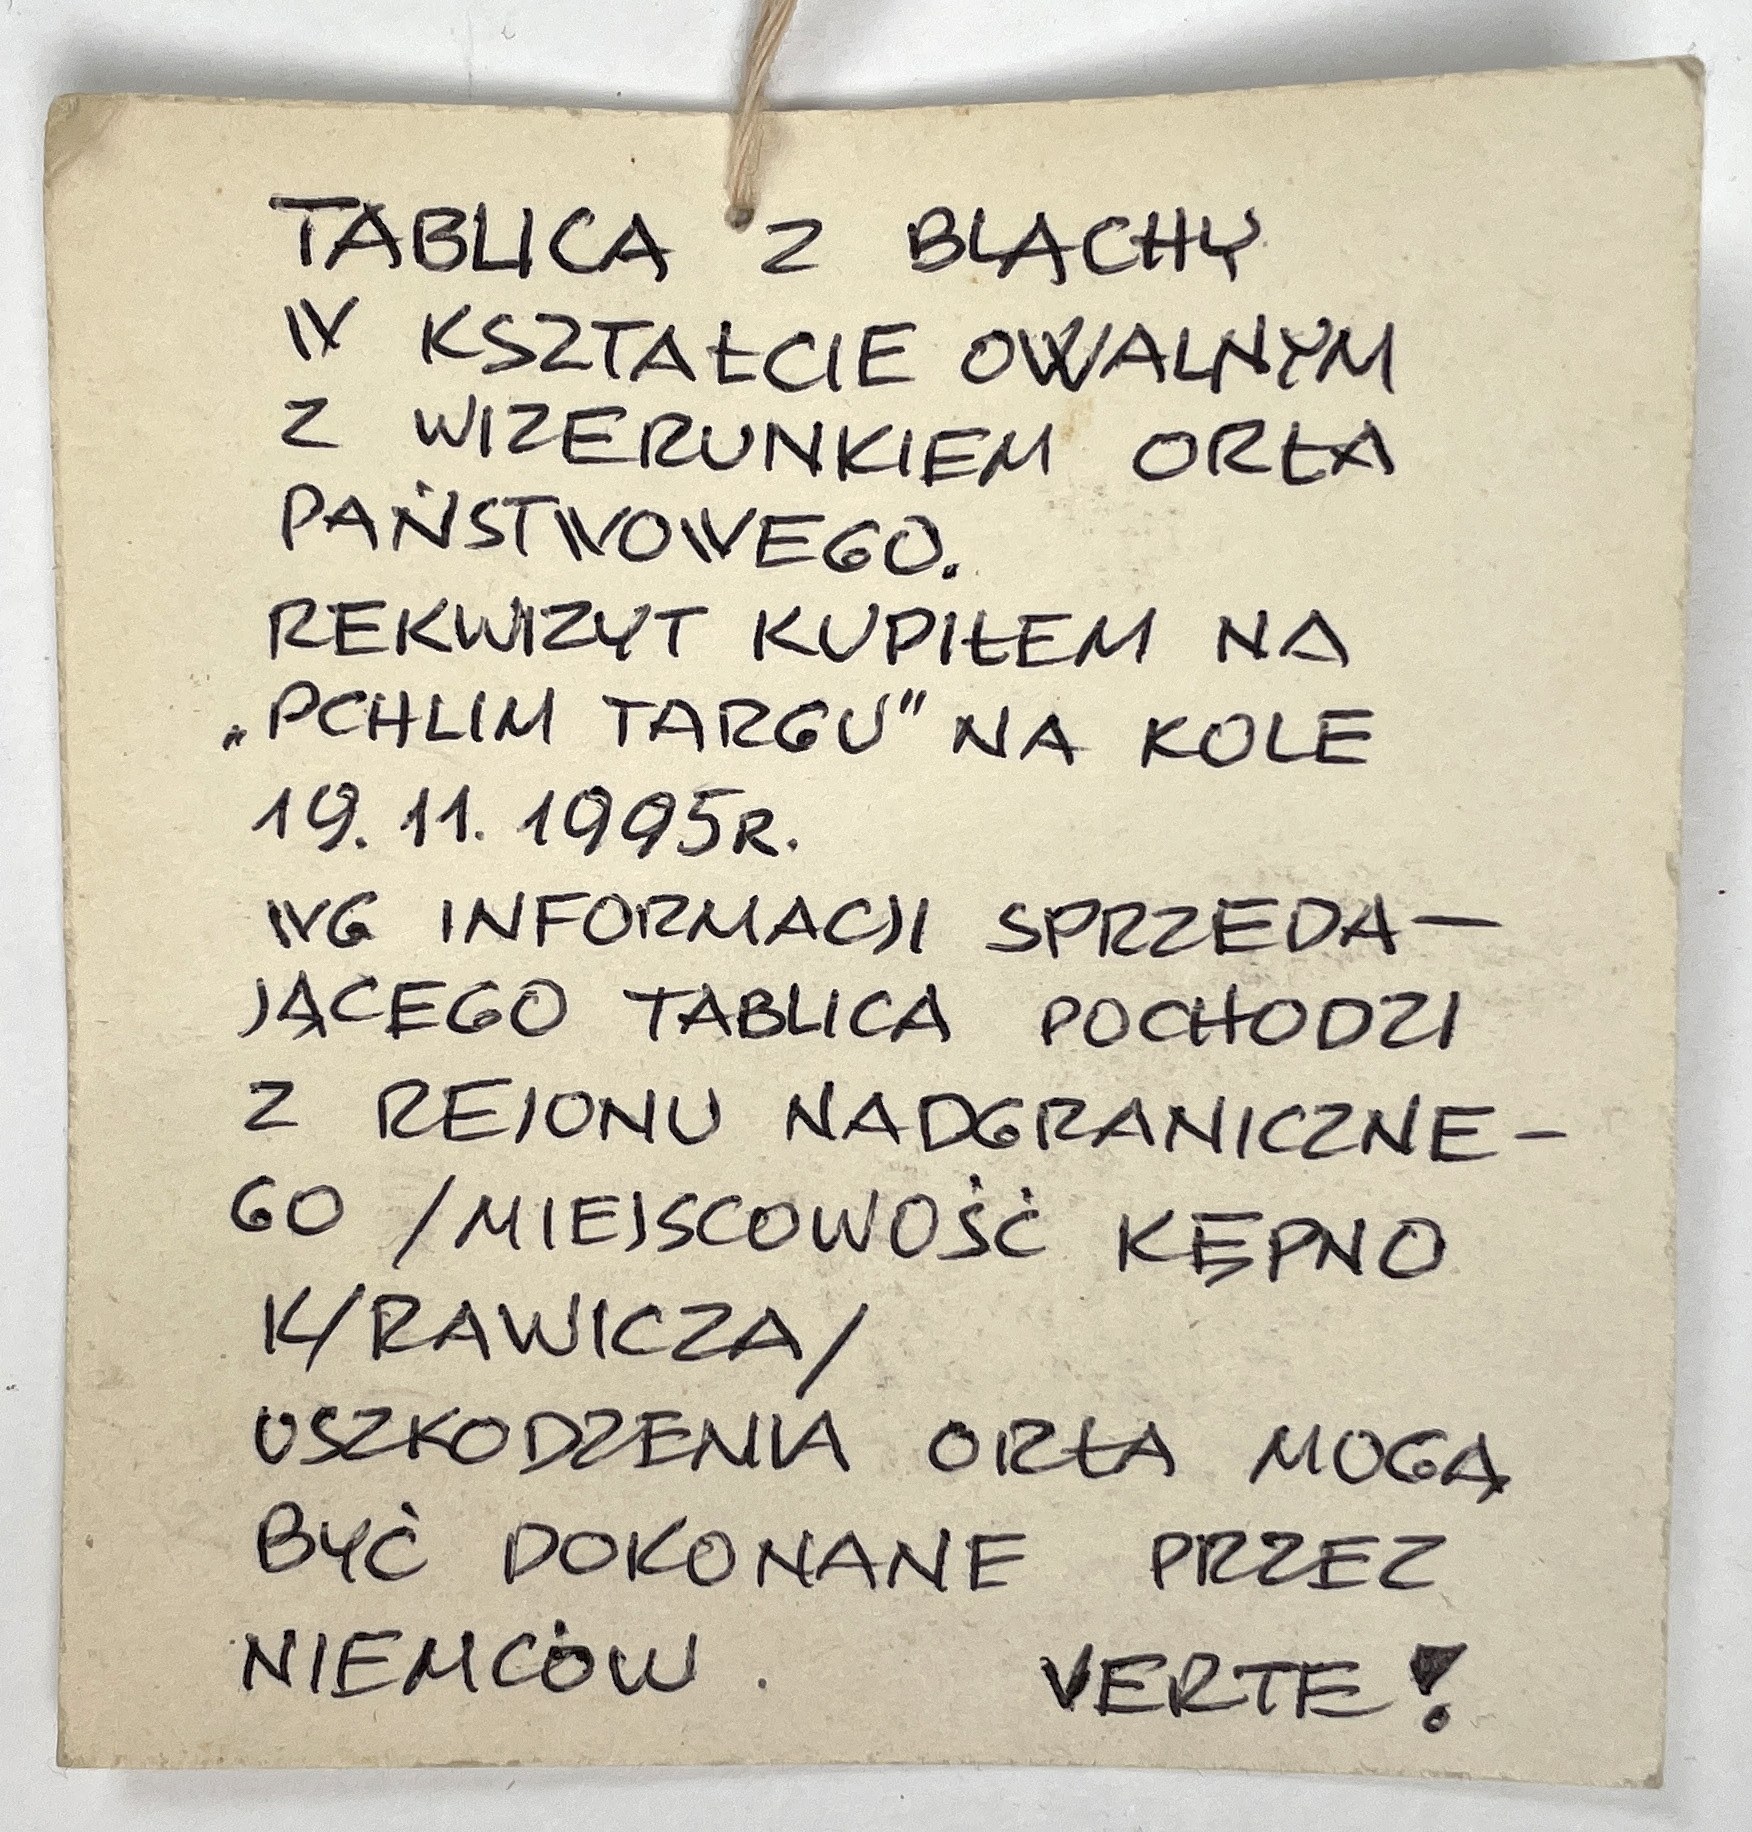 TABLICA Z BLACHY
W KSZTAŁCIE OWALNYM
Z WIZERUNKIEM ORŁA
PAŃSTWOWEGO.
REKWIZYT KUPIŁEM NA
„PCHLIM TARGU” NA KOLE
19.11.1995R.
WG INFORMACJI SPRZEDA—
JĄCEGO TABLICA POCHODZI
Z REJONU NADGRANICZNE–
GO /MIEJSCOWOŚĆ KĘPNO
K/RAWICZA/
USZKODZENIA ORŁA MOGĄ
BYĆ DOKONANE PRZEZ
NIEMCÓW. VERTE!